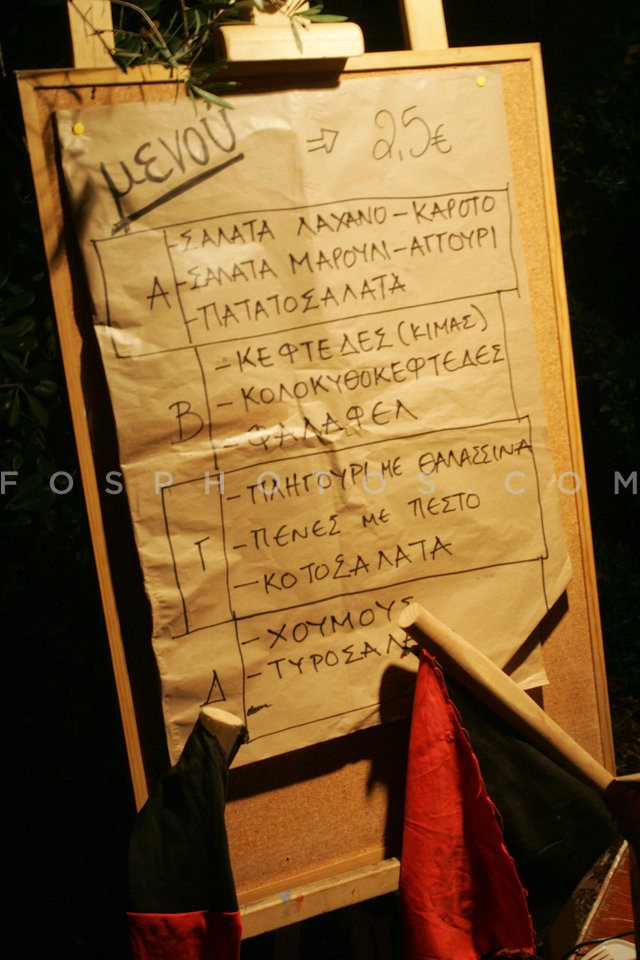 μενού ⇒ 2,5€
Α
-ΣΑΛΑΤΑ ΛΑΧΑΝΟ-ΚΑΡΟΤΟ
-ΣΑΛΑΤΑ ΜΑΡΟΥΛΙ-ΑΓΓΟΥΡΙ
-ΠΑΤΑΤΟΣΑΛΑΤΑ
Β
-ΚΕΦΤΕΔΕΣ(ΚΙΜΑΣ)
-ΚΟΛΟΚΥΘΟΚΕΦΤΕΔΕΣ
-ΦΑΛΑΦΕΛ
Γ
-ΠΛΗΓΟΥΡΙ ΜΕ ΘΑΛΑΣΣΙΝΑ
-ΠΕΝΕΣ ΜΕ ΠΕΣΤΟ
-ΚΟΤΟΣΑΛΑΤΑ
Δ
-ΧΟΥΜΟΥΣ
FOSPHOTOS.COM